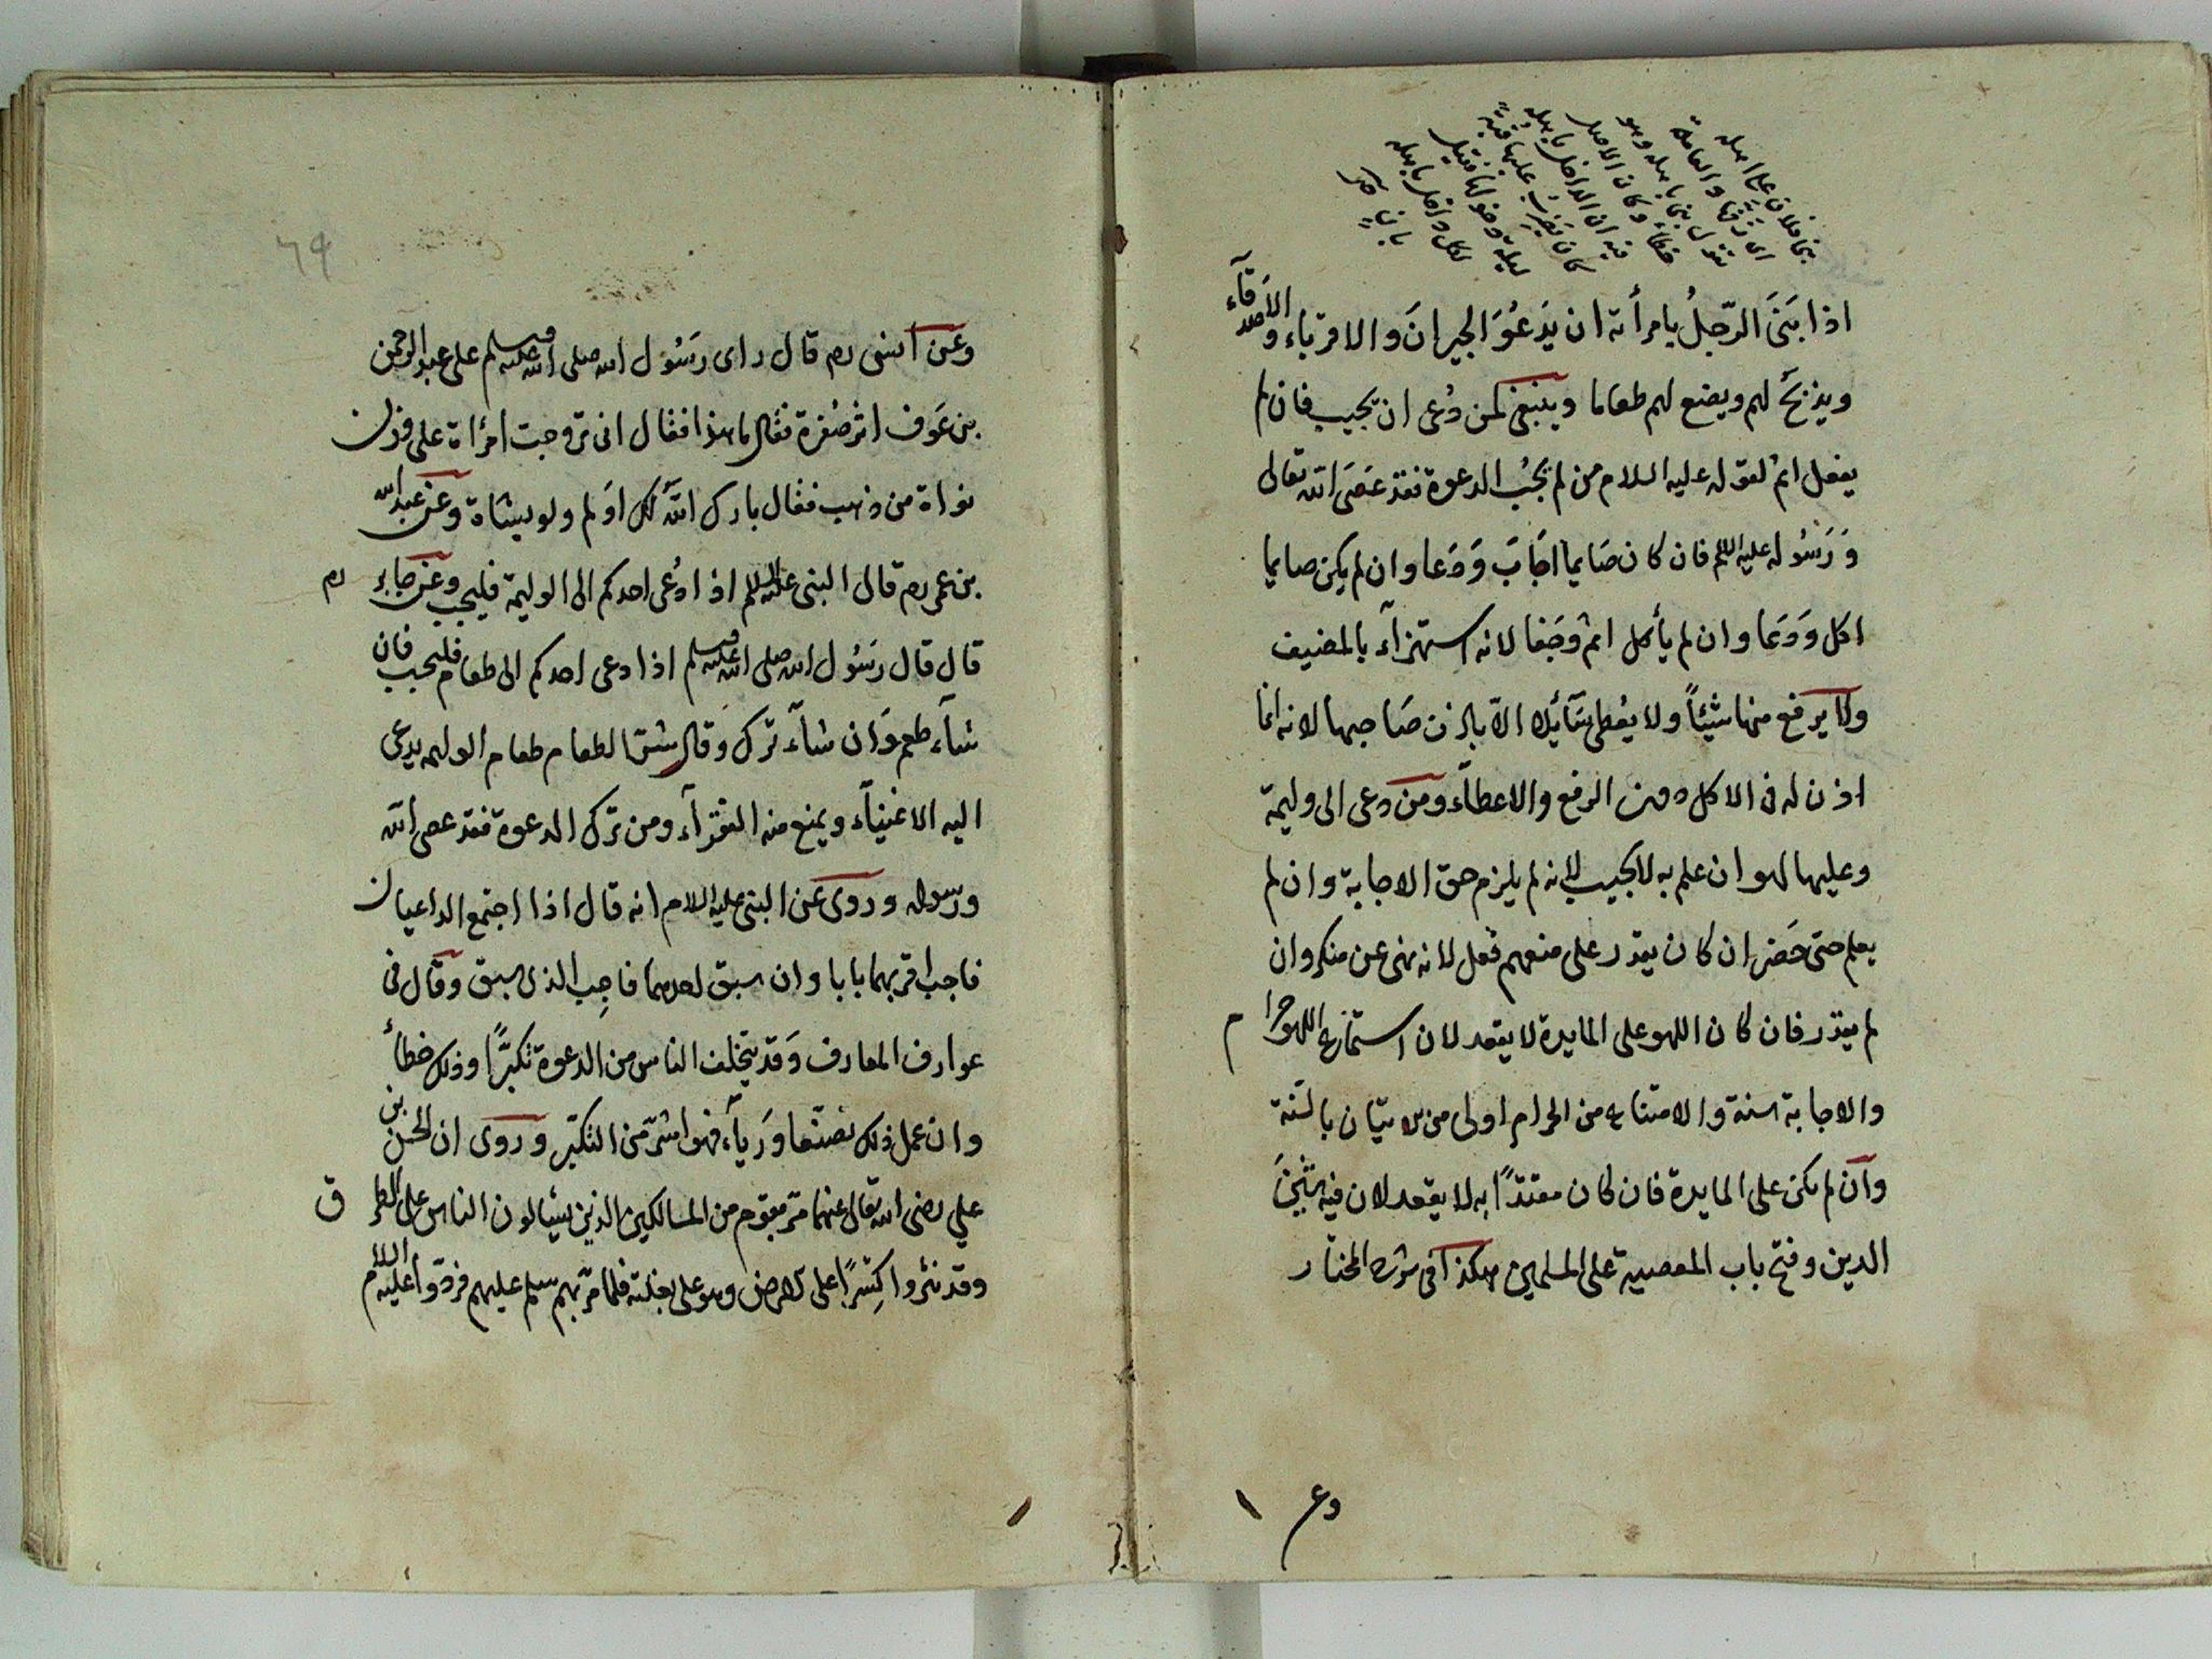 بنى فلان على اهله
اى زفّها والعامة
تقول بنى باهله وهو
خطأ وكان الاصل
فيه ان الداخل باهله
كان يضرب عليها قبة
ليلة دخوله فقيل
لكل داخل باهله
بانٍ
اذا بَنَى الرّجلُ بامرأته ان يَدعُوَ الجيرانَ والاقرباء والاصدقآء
ويذبحَ لهم ويصنع لهم طعاما وينبغى لمن دُعى ان يجيب فان لم
يفعل اثم لقوله عليه السلام من لم يُجب الدعوة فقد عَصَى الله تعالى
وَرَسُوله عليه السلم فان كان صَايما اجَابَ وَدَعا وان لم يكن صايما
اكل وَدَعا وان لم يأكل اثم وَجَفا لانه استهزآء بالمضيف
ولا يرفع منها شيئاً ولا يُعطى سَآئِلا الّا باذن صَاحبها لانه انما
اذن له فى الاكل دون الرفع والاعطآء ومن دعى الى وليمة
وعليها لهو ان علم به لا يجيب لانه لم يلزم حق الاجابة وان لم
يعلم حتى حَضر ان كان يقدر على منعهم فعل لانه نهى عن منكر وان
لم يقدر فان كان اللهو على المايدة لا يقعد لان استماع اللهو حرام
والاجابة سنة والامتناع من الحرام اولى من الاتيان بالسّنة
وان لم يكن على المايدة فان كان مقتدًا به لا يقعد لان فيه شَينَ
الدين وفتح باب المعصية على المسلمين هكذا فى شرح المختار
وع
٦٩
وعن انس رم قال راى رسُول الله صلى الله عليه وسلم على عبد الرحمن
بن عَوف اثر صُفرة فقال ما هذا فقال انى تزوجت امرأة على وزن
نواة من ذهب فقال بارك اللهُ لك اَولم ولو بشاة وعن عبد الله
بن عمر رم قال النبى عليه السلم اذا دُعى احدكم الى الوليمة فليجب وعن جابر رم
قال قال رسُول الله صلى الله عليه وسلم اذا دعى احدكم الى طعام فليجب فان
شآء طعم وَان شآء ترك وقال شرّ الطعام طعام الوليمه يدعى
اليه الاغنيآء ويمنع منه الفقرآء ومن ترك الدعوة فقد عصى الله
ورسوله وروى عن النبى عليه السلام انه قال اذا اجتمع الداعيان
فاجب اقربهما بابا وان سبق احدهما فاجِب الذى سبق وقال فى
عوارف المعارف وَقد يتخلف الناس من الدعوة تكبرًا وذلك خطأ
وان عمل ذلك تصنّعا وَريآء فهو اشرّ من التكبّر وروى ان الحسن بن
علي رضى الله تعالى عنهما مرّ بقوم من المساكين الذين يسألون الناس على الطرق
وقد نثروا كِسَرًا على الارض وهو على بغلته فلما مرّ بهم سلم عليهم فردّوا عليه السلام